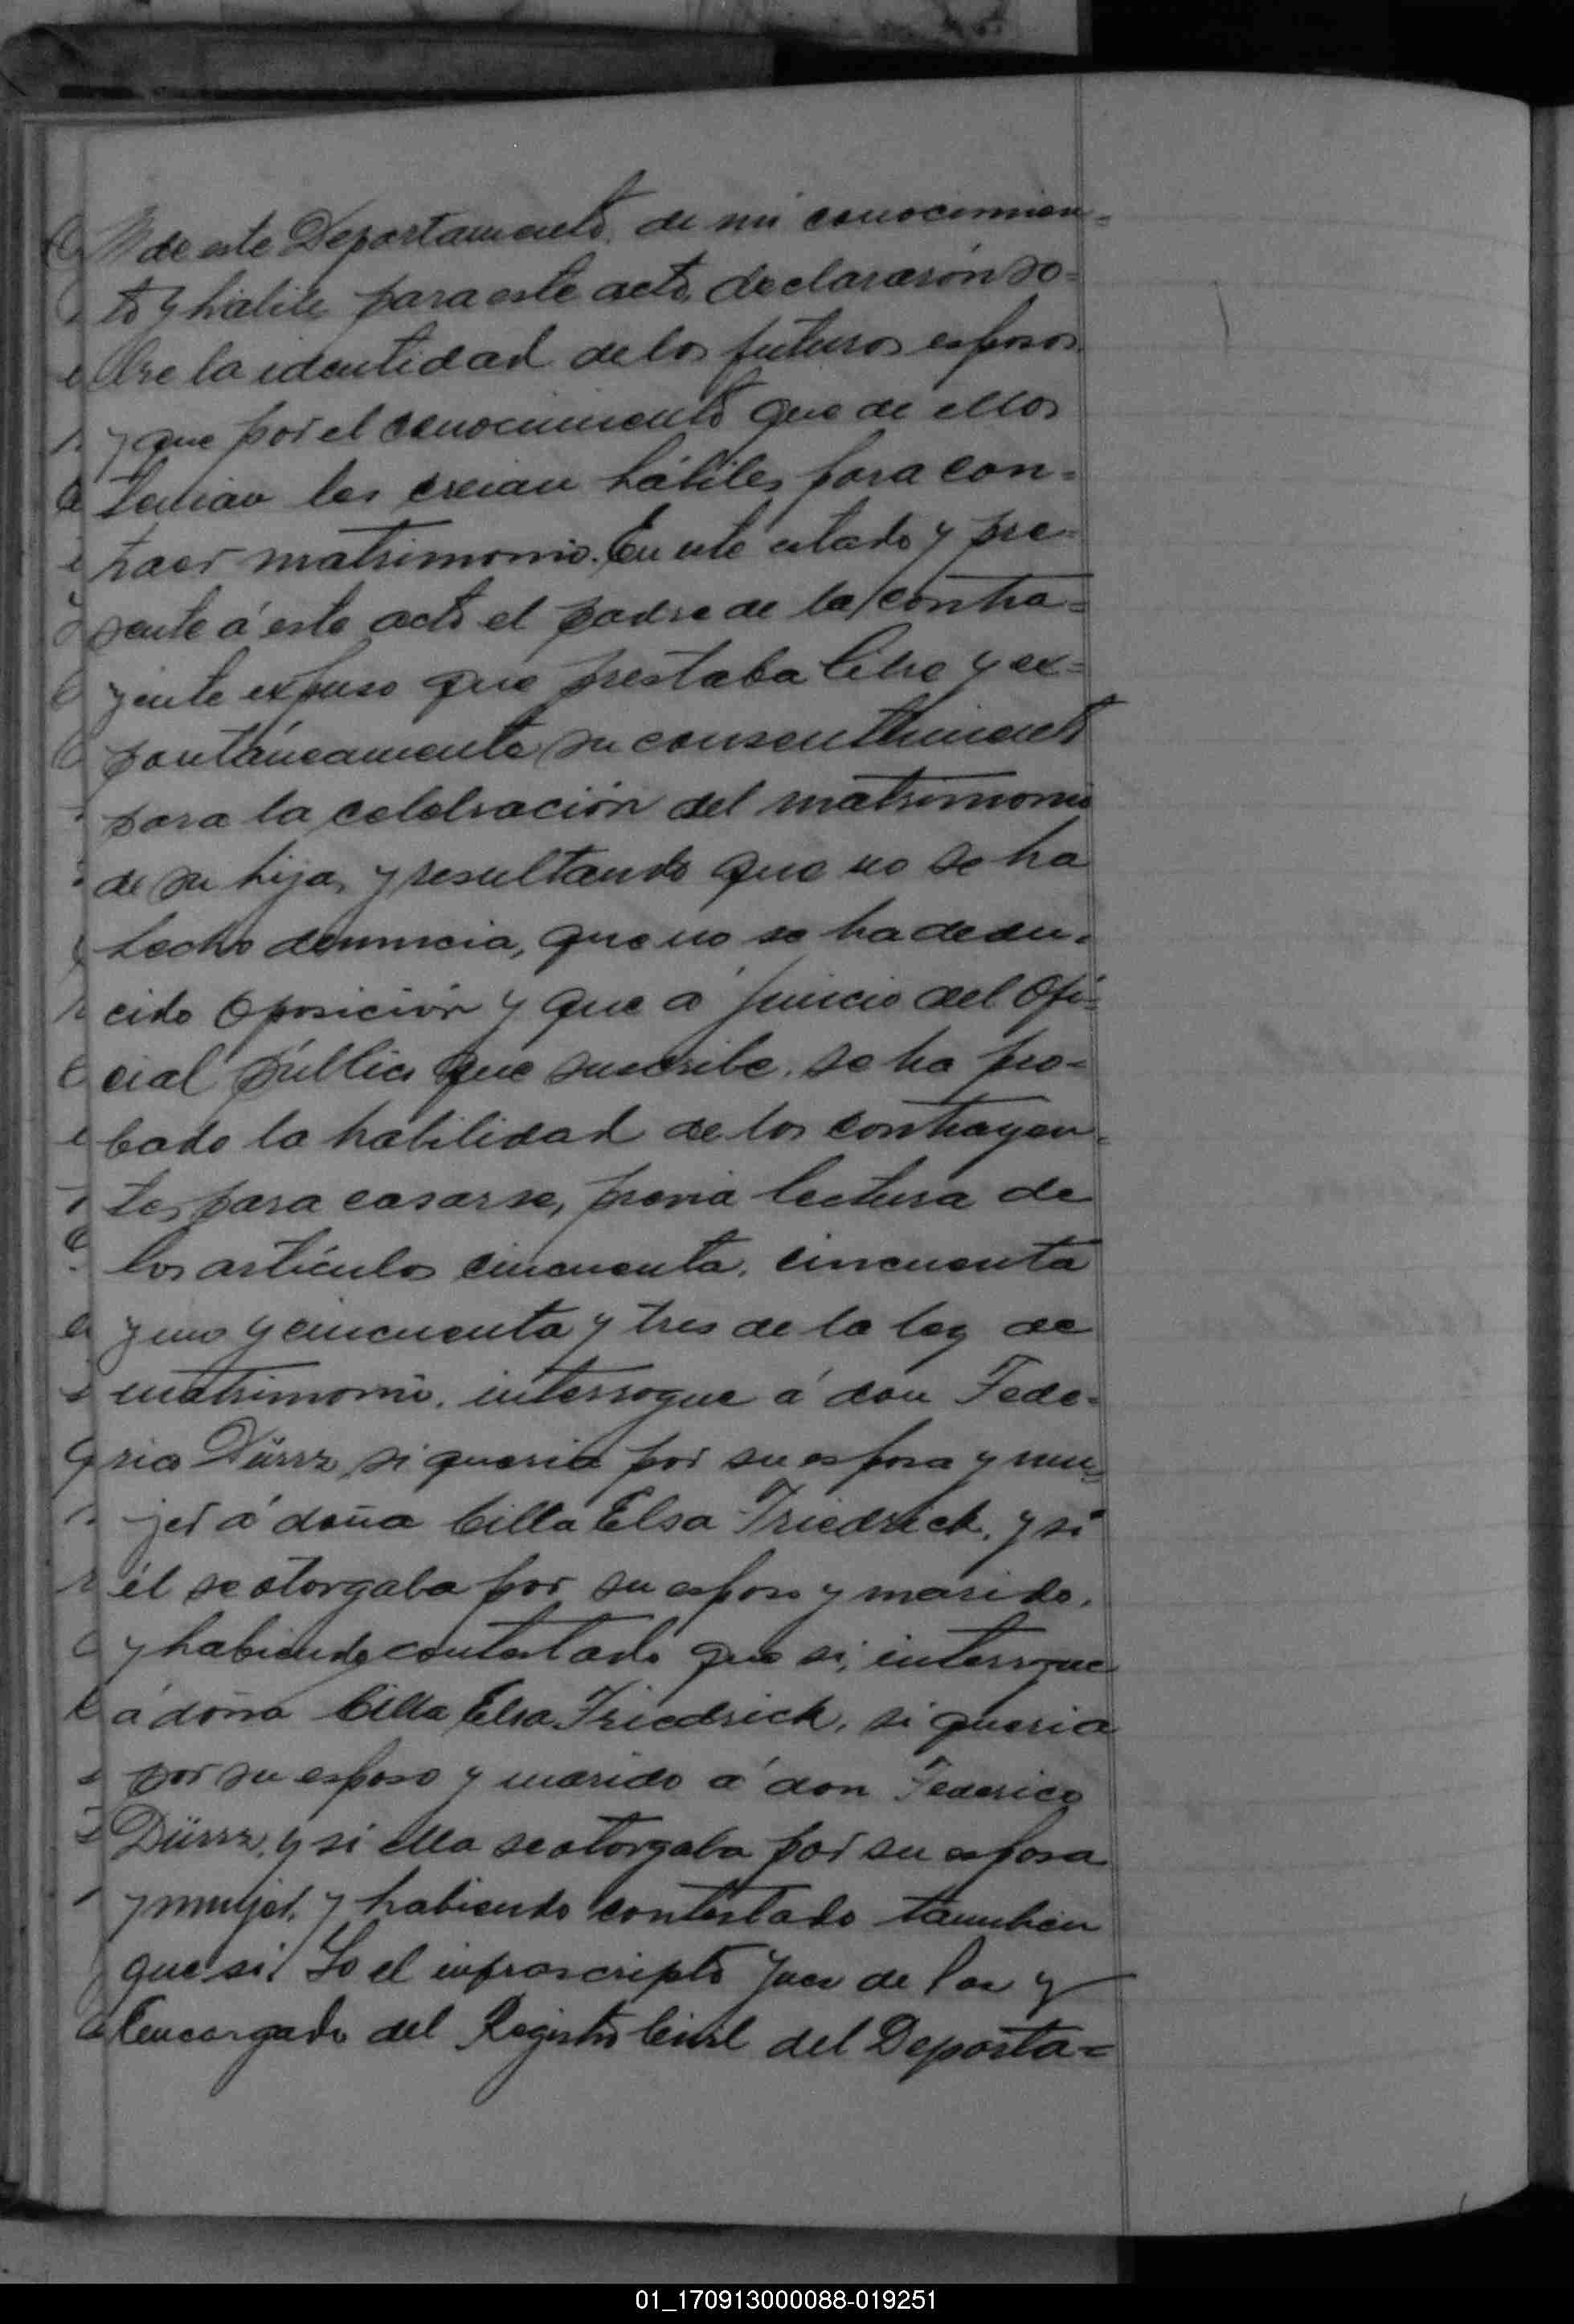 de este Departamento, de mi conocimien=
to y habiles para este acto, declararon so=
bre la identidad de los futuros esposos
y que por el conocimiento que de ellos
tenian los creian hábiles para con=
traer matrimonio. En este estado y pre=
sente á este acto el padre de la contra=
yente expuso que prestaba libre y ex=
pontáneamente su consentimiento
para la celebración del matrimonio
de su hija, y resultando que no se ha
hecho denuncia, que no se ha dedu=
cido oposición y que á juicio del Ofi=
cial público que suscribe, se ha pro=
bado la habilidad de los contrayen=
tes para casarse, previa lectura de
los artículos cincuenta, cincuenta
y uno y cincuenta y tres de la ley de
matrimonio, interrogue á don Fede=
rico Dürrz, si queria por su esposa y mu=
jer á doña Cilla Elsa Friedrich, y si
él se otorgaba por su esposo y marido,
y habiendo contestado que si, interrogue
á doña Cilla Elsa Friedrich, si queria
por su esposo y marido á don Federico
Dürrz, y si ella se otorgaba por su esposa
y mujer, y habiendo contestado tambien
que si; Yo el infrascripto Juez de Paz y
Encargado del Registro Civil del Departa=
01_170913000088-019251